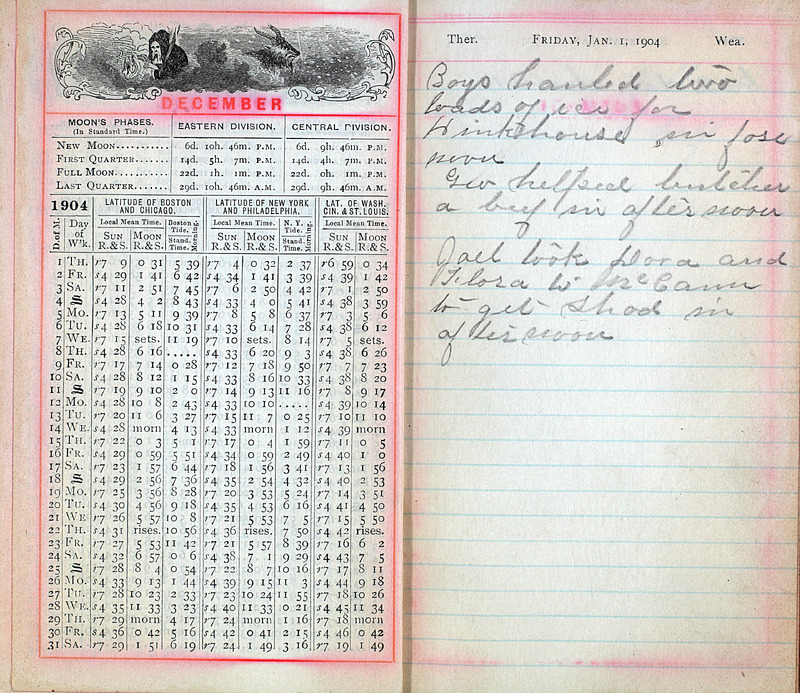 DECEMBER
MOON'S PHASES. (In Standard Time.) EASTERN DIVISION. CENTRAL DIVISION.
NEW MOON........... 6d. 10h. 46m. P.M. 6d. 9h. 46m. P.M.
FIRST QUARTER...... 14d. 5h. 7m. P.M. 14d. 4h. 7m. P.M.
FULL MOON.......... 22d. 1h. 1m. P.M. 22d. 0h. 1m. P.M.
LAST QUARTER....... 29d. 10h. 46m. A.M. 29d. 9h. 46m. A.M.
1904 LATITUDE OF BOSTON AND CHICAGO. LATITUDE OF NEW YORK AND PHILADELPHIA. LAT. OF WASH. CIN. & ST. LOUIS.
D. of M. Day of W'k. Local Mean Time. Boston Tide. Morning. Local Mean Time. N. Y. Tide. Morning. Local Mean Time.
SUN R. & S. MOON R. & S. Stand. Time. SUN R. & S. MOON R. & S. Stand. Time. SUN R. & S. MOON R. & S.
1 TH. r7 9 0 31 5 39 r7 4 0 32 2 37 r6 59 0 34
2 FR. s4 29 1 41 6 42 s4 34 1 41 3 39 s4 39 1 42
3 SA. r7 11 2 51 7 45 r7 6 2 50 4 42 r7 1 2 50
4 S s4 28 4 2 8 43 s4 33 4 0 5 41 s4 38 3 59
5 MO. r7 13 5 11 9 39 r7 8 5 8 6 37 r7 3 5 6
6 TU. s4 28 6 18 10 31 s4 33 6 14 7 28 s4 38 6 12
7 WE. r7 15 sets. 11 19 r7 10 sets. 8 14 r7 5 sets.
8 TH. s4 28 6 16 ..... s4 33 6 20 9 3 s4 38 6 26
9 FR. r7 17 7 14 0 28 r7 12 7 18 9 50 r7 7 7 23
10 SA. s4 28 8 12 1 15 s4 33 8 16 10 33 s4 38 8 20
11 S r7 19 9 10 2 0 r7 14 9 13 11 16 r7 8 9 17
12 MO. s4 28 10 8 2 43 s4 33 10 10 ..... s4 39 10 14
13 TU. r7 20 11 6 3 27 r7 15 11 7 0 25 r7 10 11 10
14 WE. s4 28 morn 4 13 s4 33 morn 1 12 s4 39 morn
15 TH. r7 22 0 3 5 1 r7 17 0 4 1 59 r7 11 0 5
16 FR. s4 29 0 59 5 51 s4 34 0 59 2 49 s4 40 1 0
17 SA. r7 23 1 57 6 44 r7 18 1 56 3 41 r7 13 1 56
18 S s4 29 2 56 7 36 s4 35 2 54 4 32 s4 40 2 53
19 MO. r7 25 3 56 8 28 r7 20 3 53 5 24 r7 14 3 51
20 TU. s4 30 4 56 9 18 s4 35 4 53 6 16 s4 41 4 50
21 WE r7 26 5 57 10 8 r7 21 5 53 7 5 r7 15 5 50
22 TH. s4 31 rises. 10 56 s4 36 rises. 7 50 s4 42 rises.
23 FR. r7 27 5 53 11 42 r7 21 5 57 8 39 r7 16 6 2
24 SA. s4 32 6 57 0 6 s4 38 7 1 9 29 s4 43 7 5
25 S r7 28 8 4 0 54 r7 22 8 7 10 16 r7 17 8 11
26 MO. s4 33 9 13 1 44 s4 39 9 15 11 3 s4 44 9 18
27 TU. r7 28 10 23 2 33 r7 23 10 24 11 55 r7 18 10 26
28 WE. s4 35 11 33 3 23 s4 40 11 33 0 21 s4 45 11 34
29 TH. r7 29 morn 4 17 r7 24 morn 1 16 r7 18 morn
30 FR. s4 36 0 42 5 16 s4 42 0 41 2 15 s4 46 0 42
31 SA. r7 29 1 51 6 19 r7 24 1 49 3 16 r7 19 1 49
Ther. FRIDAY, JAN. 1, 1904 Wea.
Boys hauled two
loads of ice for
Winkehouse, in fore
noon
Geo helped butcher
a beef in afternoon
Joel took Dora and
Flora to McCann
to get shod in
afternoon